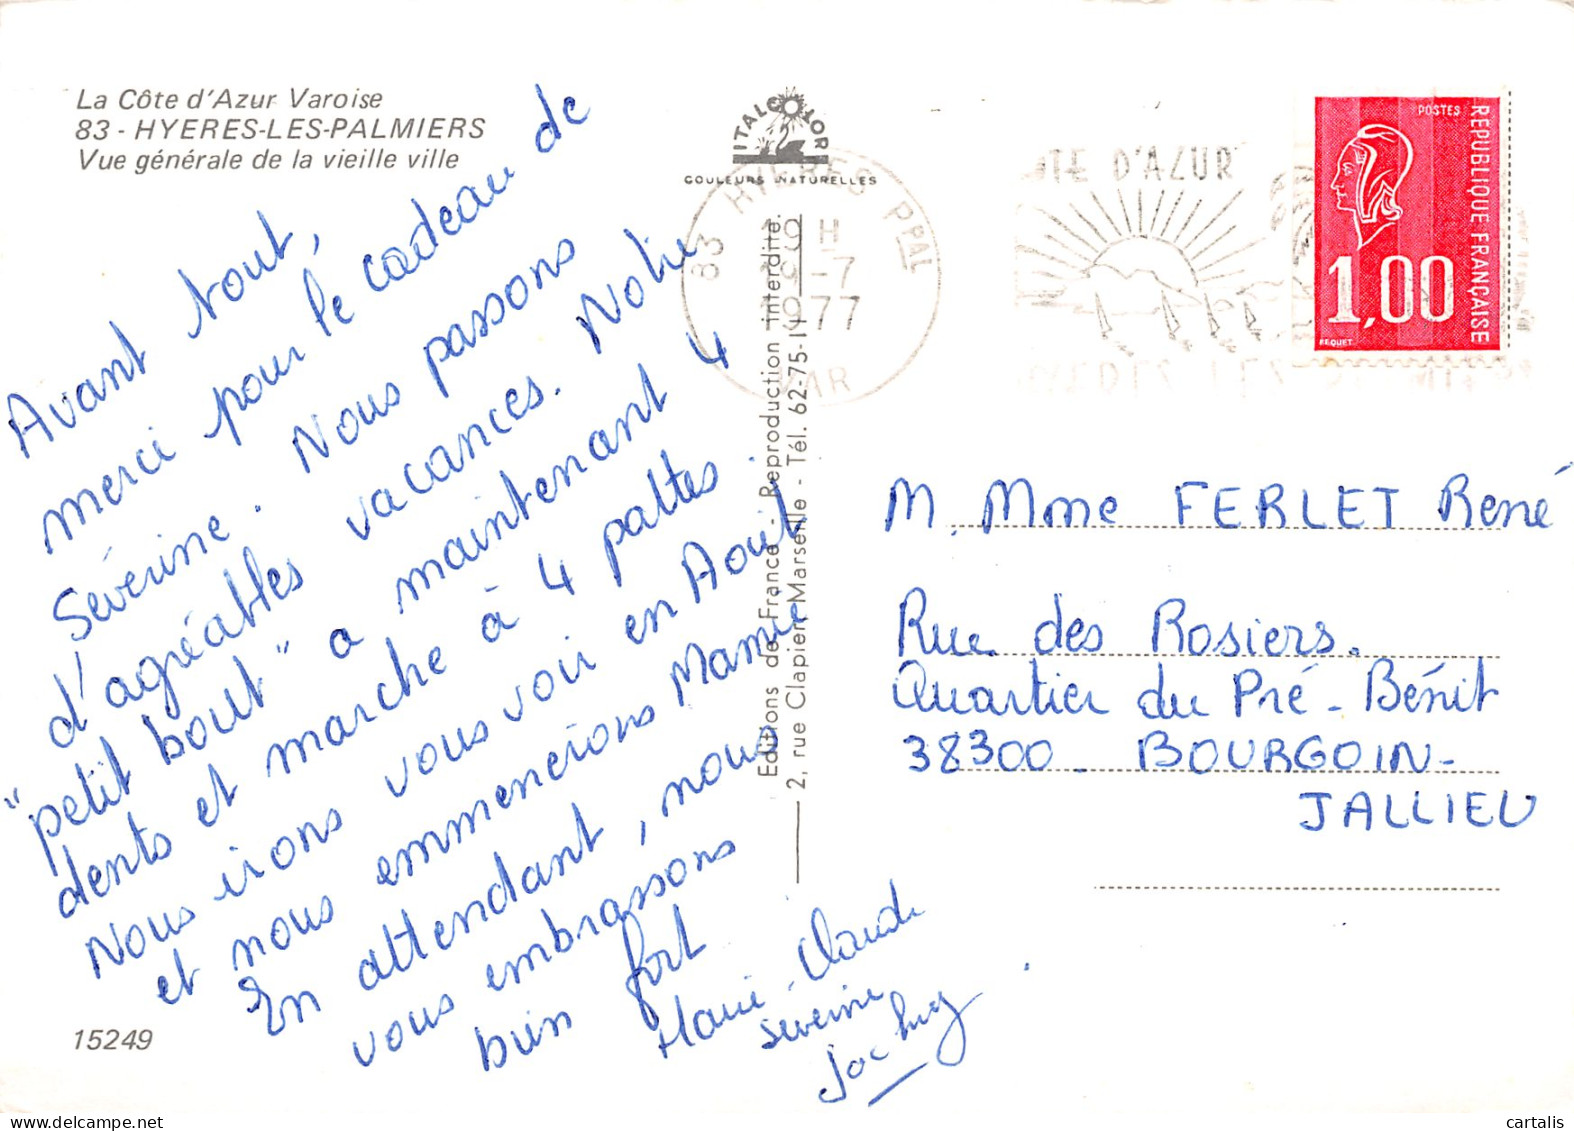 La Côte d'Azur Varoise
83 - HYERES-LES-PALMIERS
Vue générale de la vieille ville
Avant tout,
merci pour le cadeau de
Séverine. Nous passons
d'agréables vacances. Notre
"petit bout" a maintenant 4
dents et marche à 4 pattes.
Nous irons vous voir en Août
et nous emmenerons Mamie
En attendant, nous
vous embrassons
bien fort
Marie-Claude
Séverine
15249
ITALCOLOR
COULEURS NATURELLES
Editions de France - Reproduction interdite.
2, rue Clapier, Marseille - Tél. 62-75-11
83 HYERES PPAL
19 H
19-7
1977
VAR
TE D'AZUR
POSTES
REPUBLIQUE FRANÇAISE
1,00
BEQUET
M. Mme FERLET René
Rue des Rosiers.
Quartier du Pré-Bénit
38300 - BOURGOIN-
JALLIEU
cartalis